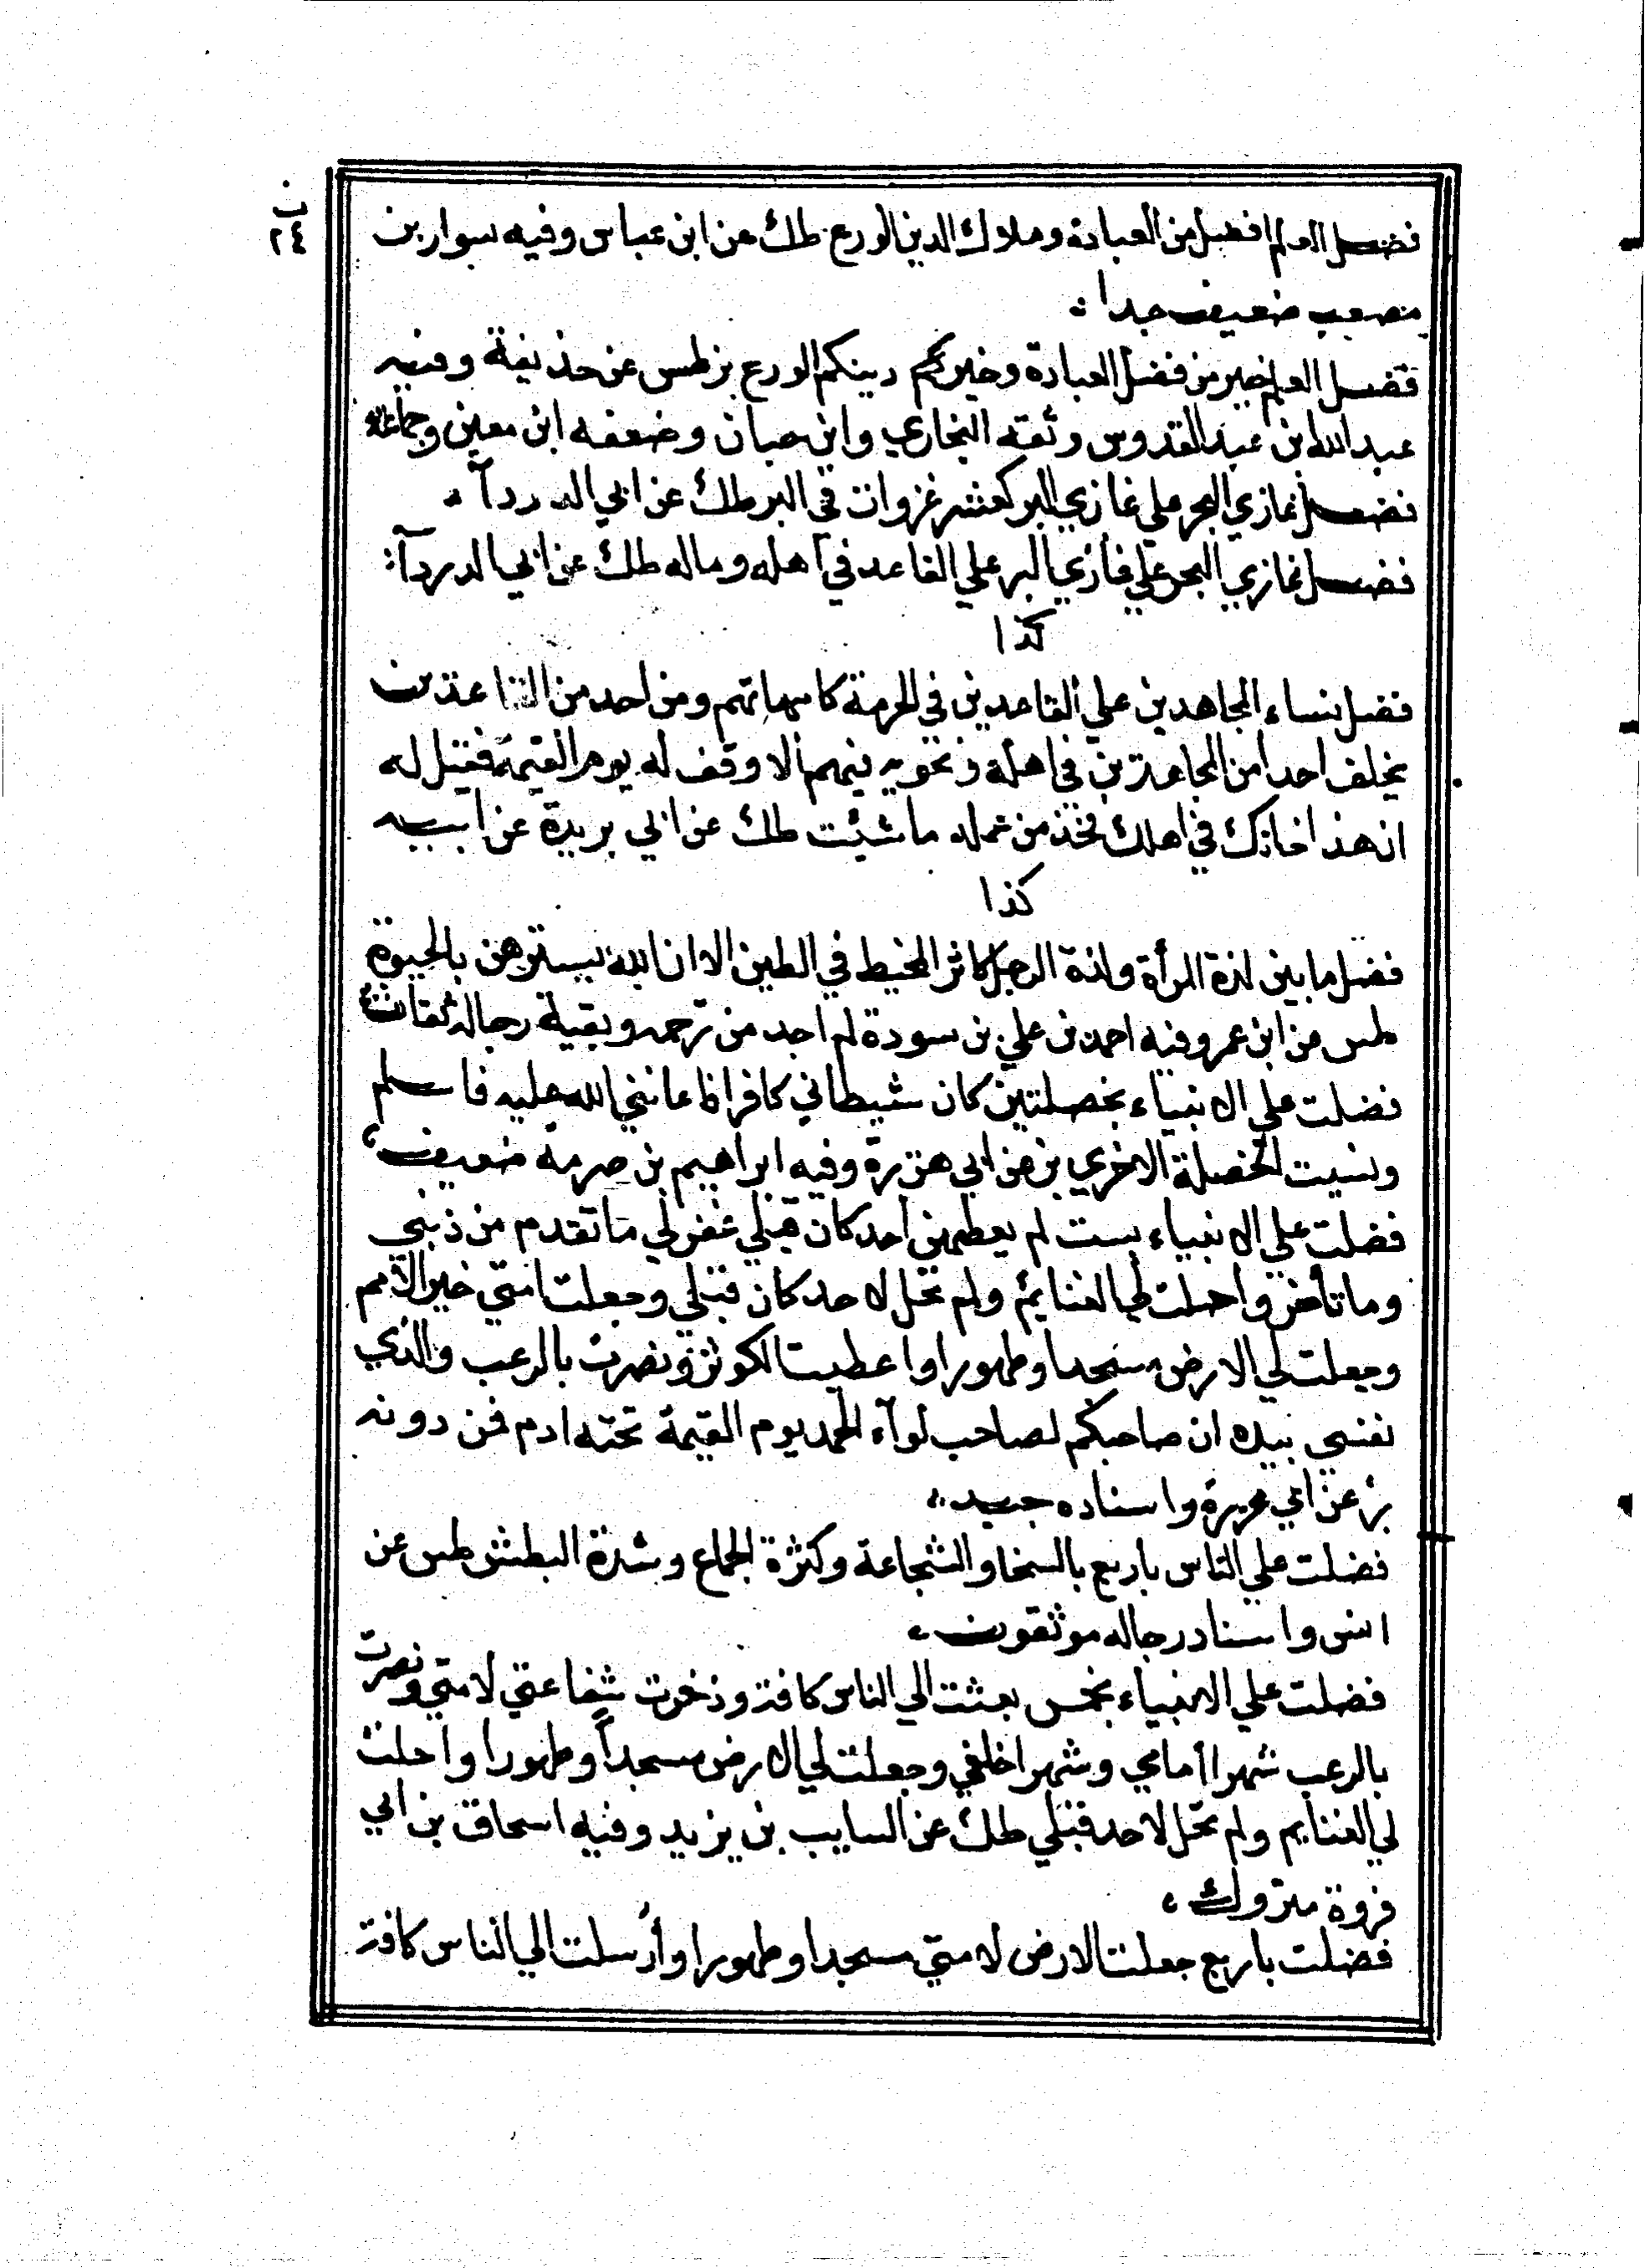 فضل العلم افضل من العبادة وملاوك الدين الورع طك عن ابن عباس وفيه سوار بن
مصعب ضعيف جدا
فضل العلم خير من فضل العبادة وخيركم دينكم الورع بز طس عن حذيفة وفيه
عبد الله بن عبد القدوس وثقه البخاري وابن حبان وضعفه ابن معين وجماعة
فضل غازي البحر علي غازي البر كعشر غزوات في البر طك عن ابي الدردآ
فضل غازي البحر علي غازي البر علي القاعد في اهله وماله طك عن ابي الدردآ
كذا
فضل نساء المجاهدين علي القاعدين في الحرمة كامهاتهم ومن احد من القاعدين
يخلف احدا من المجاهدين في اهله فيهم الا وقف له يوم القيمة فقيل له
ان هذا خانك في اهلك فخذ من عمله ما شئت طك عن ابي بريدة عن ابيه
كذا
فضل ما بين لذة المرأة ولذة الرجل كاثر المخيط في الطين الا ان الله يسترهن بالحيوة
طس من ابن عمرو فيه احمد بن علي بن سودة لم اجد من ترجمه وبقية رجاله ثقات
فضلت علي الانبياء بخصلتين كان شيطاني كافرا فاعانني الله عليه فاسلم
ونسيت الخصلة الاخري بز عن ابي هريرة وفيه ابراهيم بن صرمة ضعيف
فضلت علي الانبياء بست لم يعطهن احد كان قبلي غفر لي ما تقدم من ذنبي
وما تأخر واحلت لي الغنايم ولم تحل لاحد كان قبلي وجعلت امتي خير الامم
وجعلت لي الارض مسجدا وطهورا واعطيت الكوثر ونصرت بالرعب والذي
نفسي بيده ان صاحبكم لصاحب لوآء الحمد يوم القيمة تحته ادم فمن دونه
بز عن ابي هريرة واسناده جيد
فضلت علي الناس باربع بالسخا والشجاعة وكثرة الجماع وشدة البطش طس عن
انس واسناد رجاله موثقون
فضلت علي الانبياء بخمس بعثت الي الناس كافة وذخرت شفاعتي لامتي ونصرت
بالرعب شهرا أمامي وشهرا خلفي وجعلت لي الارض مسجداً وطهورا واحلت
لي الغنايم ولم تحل لاحد قبلي طك عن السايب بن يزيد وفيه اسحاق بن ابي
فروة متروك
فضلت باربع جعلت الارض لامتي مسجدا وطهورا وأرسلت الي الناس كافة